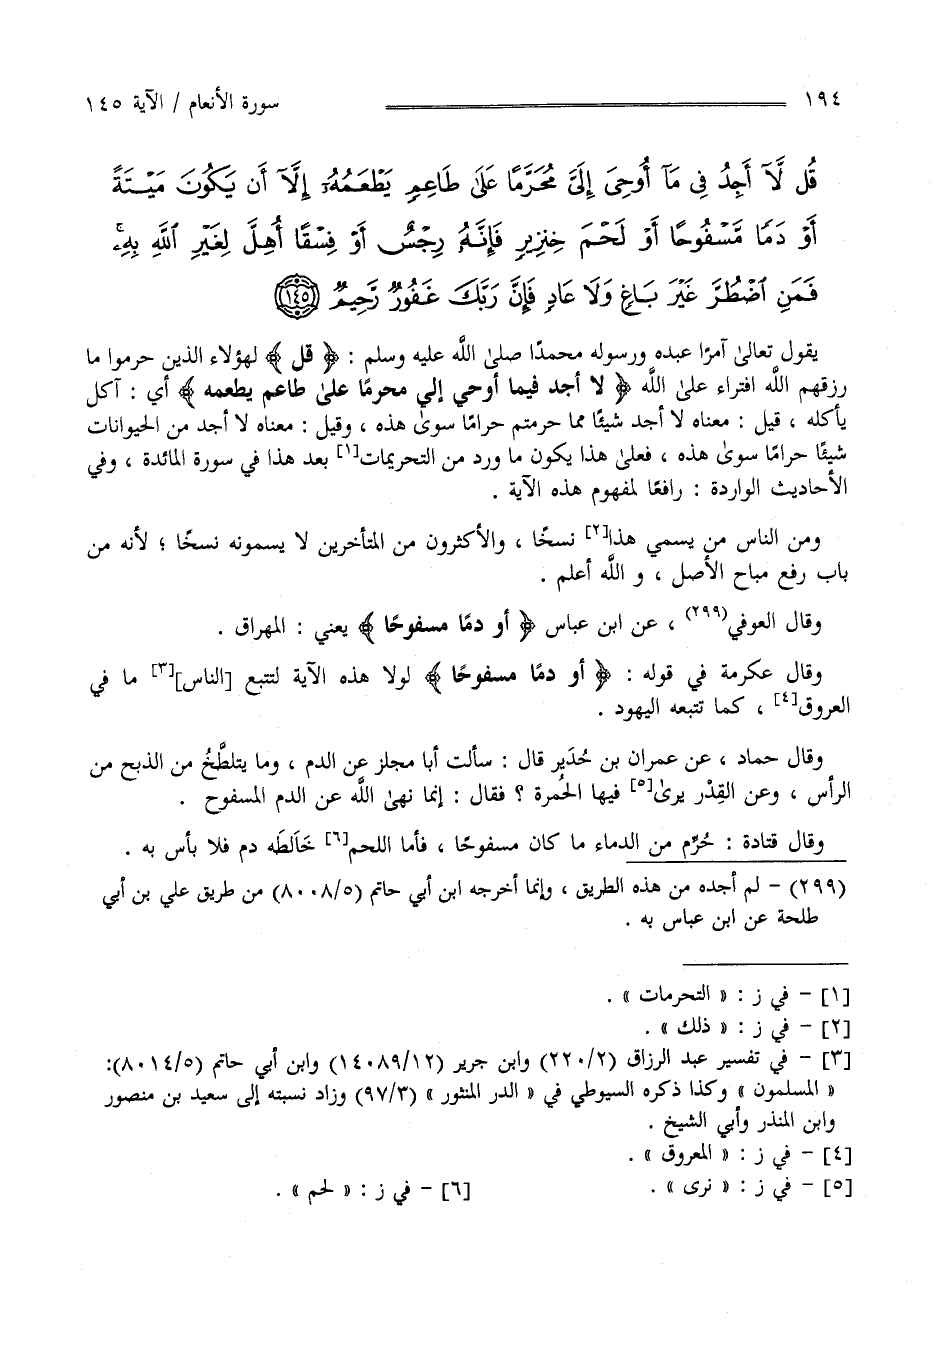 ١٩٤ سورة الأنعام / الآية ١٤٥
قُل لَّآ أَجِدُ فِي مَآ أُوحِيَ إِلَيَّ مُحَرَّمًا عَلَىٰ طَاعِمٍ يَطْعَمُهُۥٓ إِلَّآ أَن يَكُونَ مَيْتَةً
أَوْ دَمًا مَّسْفُوحًا أَوْ لَحْمَ خِنزِيرٍ فَإِنَّهُۥ رِجْسٌ أَوْ فِسْقًا أُهِلَّ لِغَيْرِ ٱللَّهِ بِهِۦۚ
فَمَنِ ٱضْطُرَّ غَيْرَ بَاغٍ وَلَا عَادٍ فَإِنَّ رَبَّكَ غَفُورٌ رَّحِيمٌ ١٤٥
يقول تعالىٰ آمرًا عبده ورسوله محمدًا صلىٰ اللَّه عليه وسلم : ﴿ قل ﴾ لهؤلاء الذين حرموا ما
رزقهم اللَّه افتراء علىٰ اللَّه ﴿ لا أجد فيما أوحي إلي محرمًا علىٰ طاعم يطعمه ﴾ أي : آكل
يأكله ، قيل : معناه لا أجد شيئًا مما حرمتم حرامًا سوىٰ هذه ، وقيل : معناه لا أجد من الحيوانات
شيئًا حرامًا سوىٰ هذه ، فعلىٰ هذا يكون ما ورد من التحريمات[١] بعد هذا في سورة المائدة ، وفي
الأحاديث الواردة : رافعًا لمفهوم هذه الآية .
ومن الناس من يسمي هذا[٢] نسخًا ، والأكثرون من المتأخرين لا يسمونه نسخًا ؛ لأنه من
باب رفع مباح الأصل ، و اللَّه أعلم .
وقال العوفي(٢٩٩) ، عن ابن عباس ﴿ أو دمًا مسفوحًا ﴾ يعني : المهراق .
وقال عكرمة في قوله : ﴿ أو دمًا مسفوحًا ﴾ لولا هذه الآية لتتبع [الناس][٣] ما في
العروق[٤] ، كما تتبعه اليهود .
وقال حماد ، عن عمران بن حُدَير قال : سألت أبا مجلز عن الدم ، وما يتلطَّخُ من الذبح من
الرأس ، وعن القِدْر يرىٰ[٥] فيها الحُمرة ؟ فقال : إنما نهىٰ اللَّه عن الدم المسفوح .
وقال قتادة : حُرِّم من الدماء ما كان مسفوحًا ، فأما اللحم[٦] خَالَطَه دم فلا بأس به .
(٢٩٩) - لم أجده من هذه الطريق ، وإنما أخرجه ابن أبي حاتم (٨٠٠٨/٥) من طريق علي بن أبي
طلحة عن ابن عباس به .
[١] - في ز : « التحرمات » .
[٢] - في ز : « ذلك » .
[٣] - في تفسير عبد الرزاق (٢٢٠/٢) وابن جرير (١٤٠٨٩/١٢) وابن أبي حاتم (٨٠١٤/٥):
« المسلمون » وكذا ذكره السيوطي في « الدر المنثور » (٩٧/٣) وزاد نسبته إلى سعيد بن منصور
وابن المنذر وأبي الشيخ .
[٤] - في ز : « المعروق » .
[٥] - في ز : « نرى » . [٦] - في ز : « لحم » .